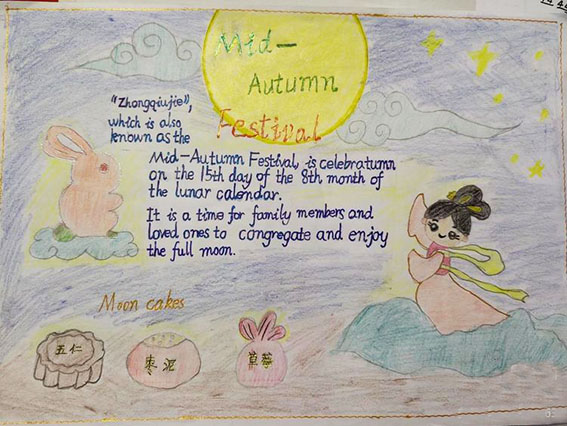 Mid-
Autumn
Festival
"Zhongqiujie",
which is also
known as the
Mid-Autumn Festival, is celebratumn
on the 15th day of the 8th month of
the lunar calendar.
It is a time for family members and
loved ones to congregate and enjoy
the full moon.
Moon cakes
五仁
枣泥
草莓